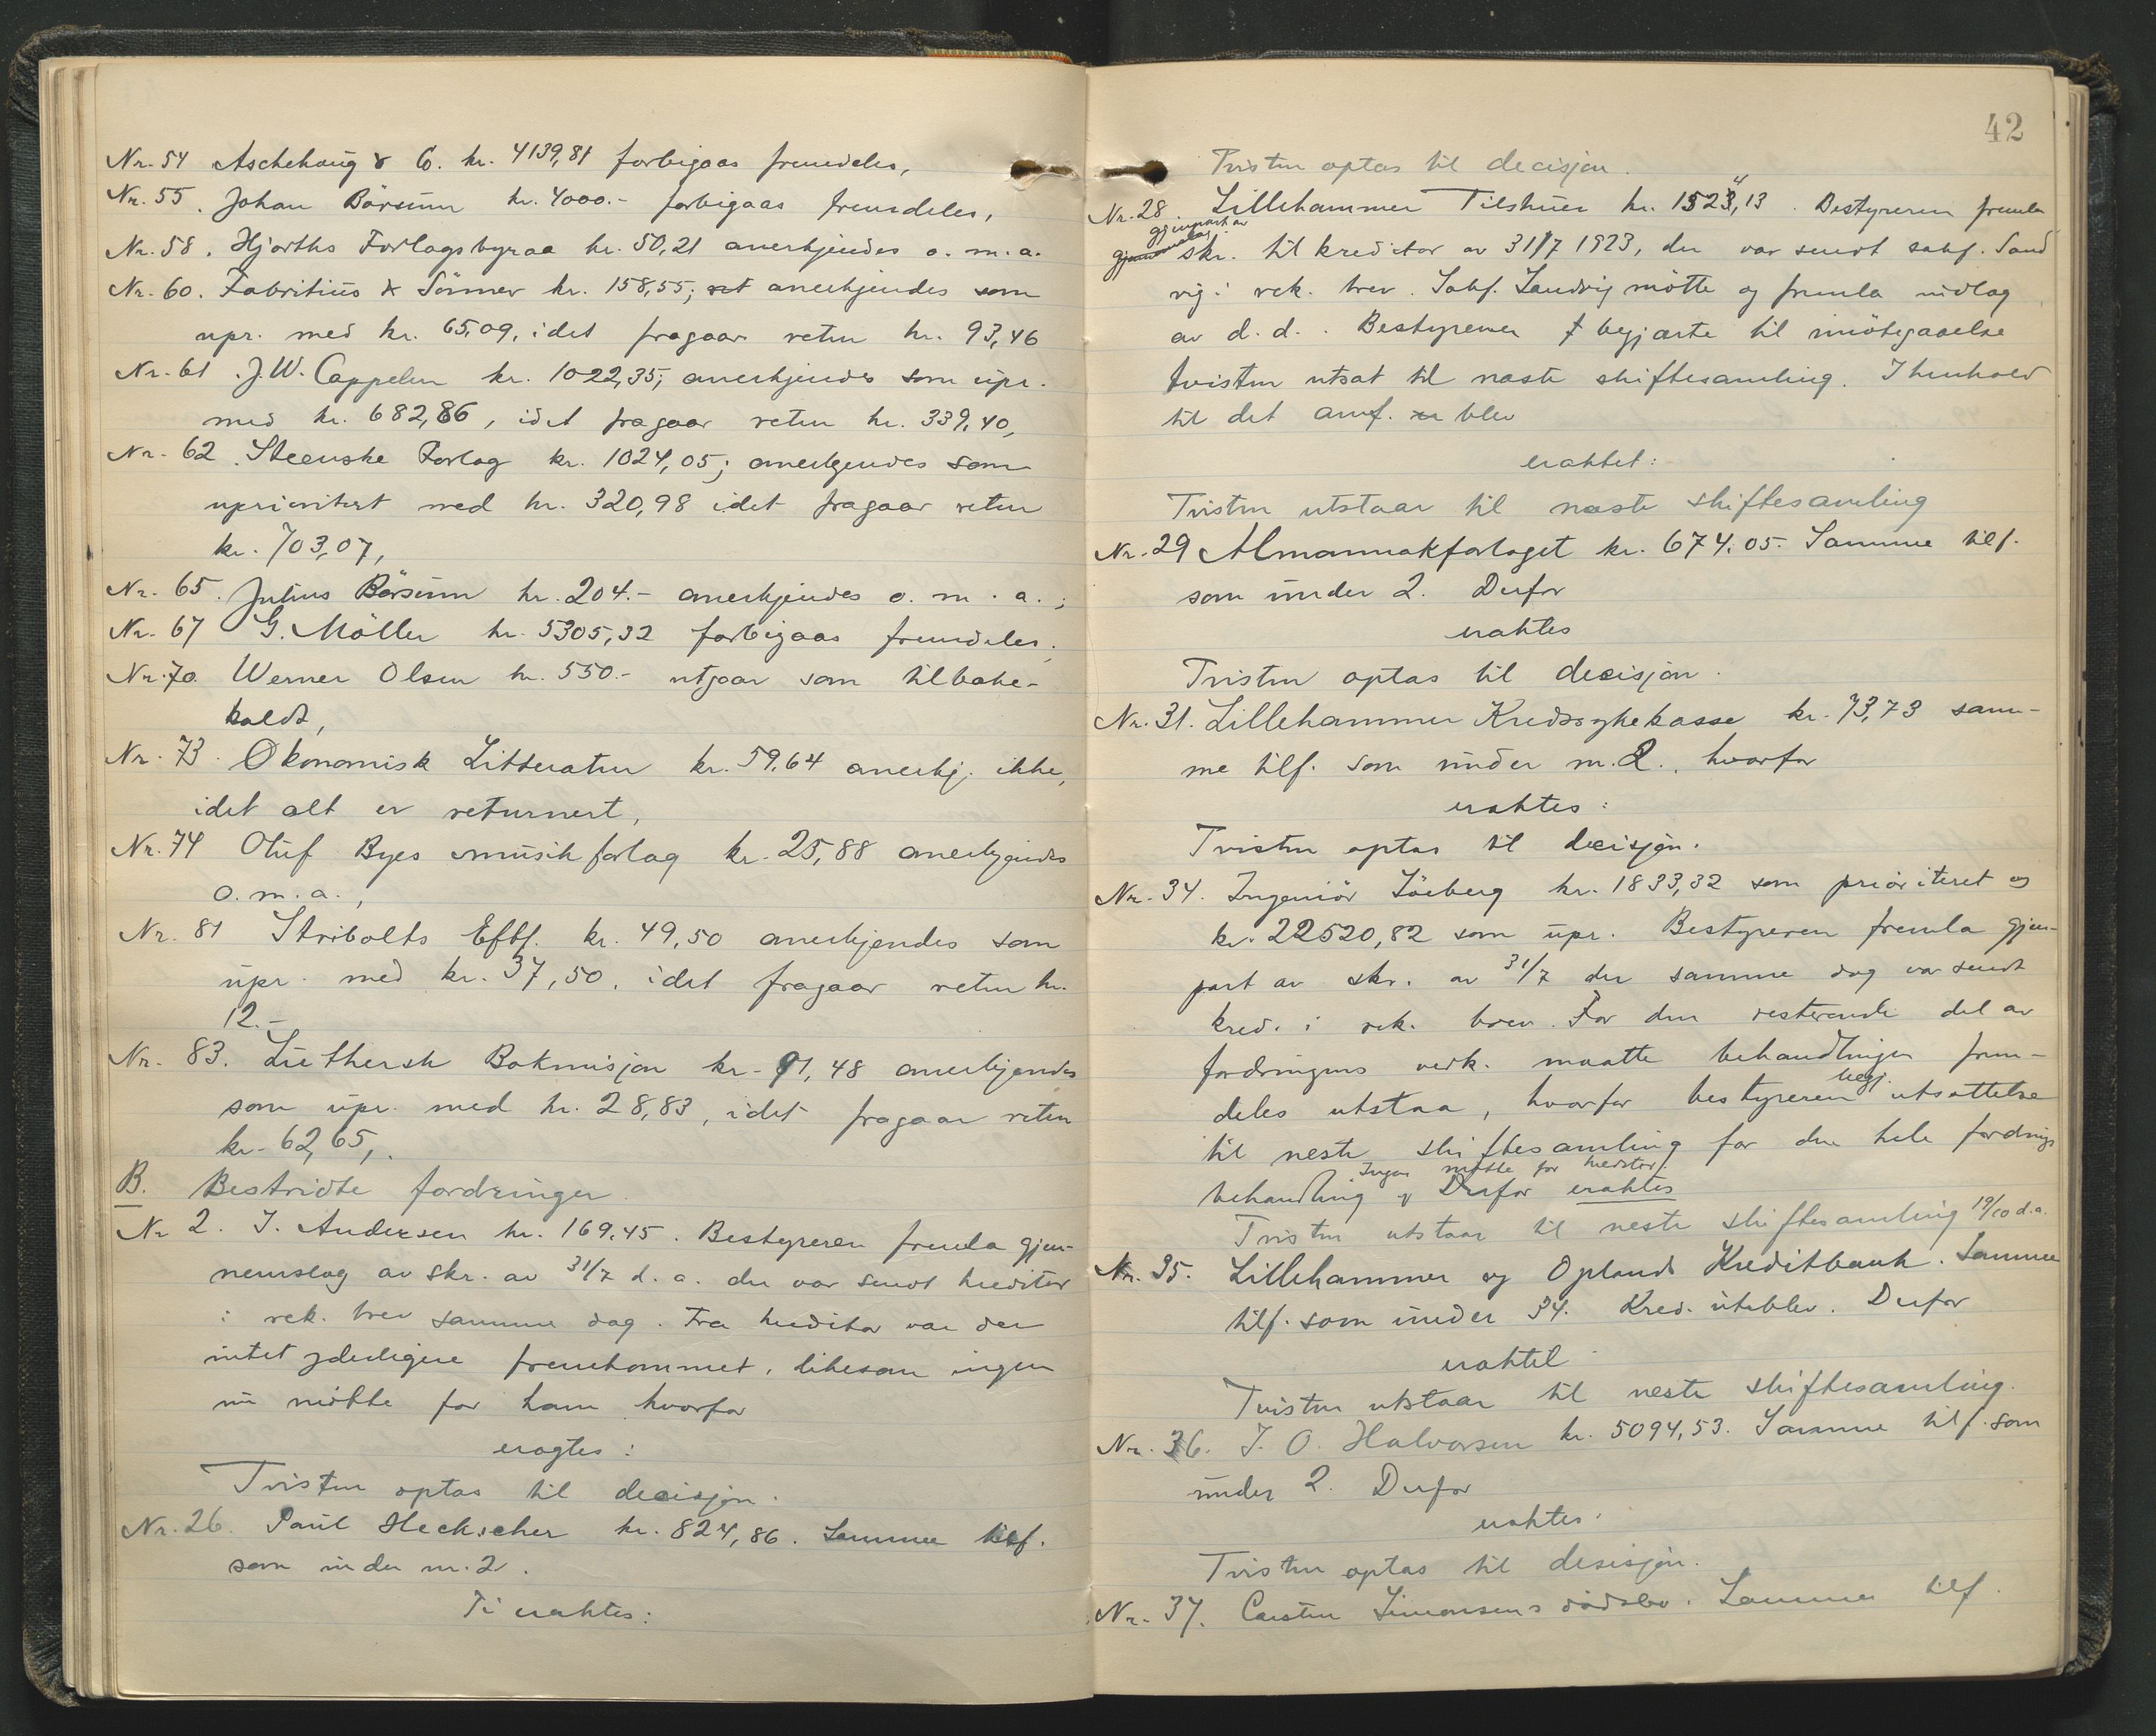 Nr. 54 Aschehoug & Co. kr. 4139,81 forbigaas fremdeles,
Nr. 55. Johan Börsum kr. 4000.- forbigaas fremdeles,
Nr. 58. Hjorths Forlagsbyraa kr. 50,21 anerkjendes o. m. a.
Nr. 60. Fabritius & Sönner kr. 158,55; anerkjendes som
upr. med kr. 65,09, idet fragaar retur kr. 93,46
Nr. 61. J. W. Cappelen kr. 1022,35; anerkjendes som upr.
med kr. 682,86, idet fragaar retur kr. 339,40,
Nr. 62. Steenske Forlag kr. 1024,05; anerkjendes som
uprioritert med kr. 320,98 idet fragaar retur
kr. 703,07,
Nr. 65. Julius Börsum kr. 204.- anerkjendes o. m. a.;
Nr. 67 G. Möller kr. 5305,32 forbigaas fremdeles;
Nr. 70. Werner Olsen kr. 550.- utgaar som tilbake-
kaldt,
Nr. 73. Økonomisk Litteratur kr. 59,64 anerkj. ikke,
idet alt er returnert,
Nr. 74 Oluf Byes musikforlag kr. 25,88 anerkjendes
o. m. a.,
Nr. 81 Stribolts Eftf. kr. 49,50 anerkjendes som
upr. med kr. 37,50, idet fragaar retur kr.
12.-
Nr. 83. Luthersk Bokmisjon kr. 91,48 anerkjendes
som upr. med kr. 28,83, idet fragaar retur
kr. 62,65,.
B. Bestridte fordringer.
Nr 2. I. Andersen kr. 169,45. Bestyreren fremla gjen-
nemslag av skr. av 31/7 d. a. der var sendt kreditor
i rek. brev samme dag. Fra kreditor var der
intet yderligere fremkommet, likesom ingen
nu mötte for ham hvorfor
eragtes:
Tvisten optas til decisjon.
Nr. 26. Paul Heckscher kr. 824,86. Samme tilf.
som under nr. 2.
Ti eraktes:
42
Tvisten optas til decisjon.
Nr. 28. Lillehammer Tilskuer kr. 1524,13. Bestyreren fremla
gjenpart av
skr. til kreditor av 31/7 1923, der var sendt sakf. Sand
vig i rek. brev. Sakf. Sandvig mötte og fremla indlæg
av d. d. Bestyreren begjærte til imötegaaelse
tvisten utsat til næste skiftesamling. I henhold
til det anf. blev
eraktet:
Tvisten utstaar til næste skiftesamling
Nr. 29 Almannakforlaget kr. 674.05. Samme tilf.
som under 2. Derfor
eraktes
Tvisten optas til decisjon.
Nr. 31. Lillehammer Kredssykekasse kr. 73,73 sam-
me tilf. som under nr. 2., hvorfor
eraktes:
Tvisten optas til decisjon.
Nr. 34. Ingeniör Söeberg kr. 1833,32 som prioriteret og
kr. 22520,82 som upr. Bestyreren fremla gjen-
part av skr. av 31/7 der samme dag var sendt
kred. i rek. brev. For den resterende del av
fordringens vedk. maatte behandlingen frem-
deles utstaa, hvorfor bestyreren begj. utsættelse
til neste skiftesamling for den hele fordrings
Ingen mötte for kreditor.
behandling. Derfor eraktes
Tvisten utstaar til neste skiftesamling 19/10 d.a.
Nr. 35. Lillehammer og Oplands Kreditbank. Samme
tilf. som under 34. Kred. uteblev. Derfor
eraktet
Tvisten utstaar til neste skiftesamling.
Nr. 36. J. O. Halvorsen kr. 5094,53. Samme tilf. som
under 2. Derfor
eraktes:
Tvisten optas til desisjon.
Nr. 37. Carsten Simonsens dödsbo. Samme tilf.